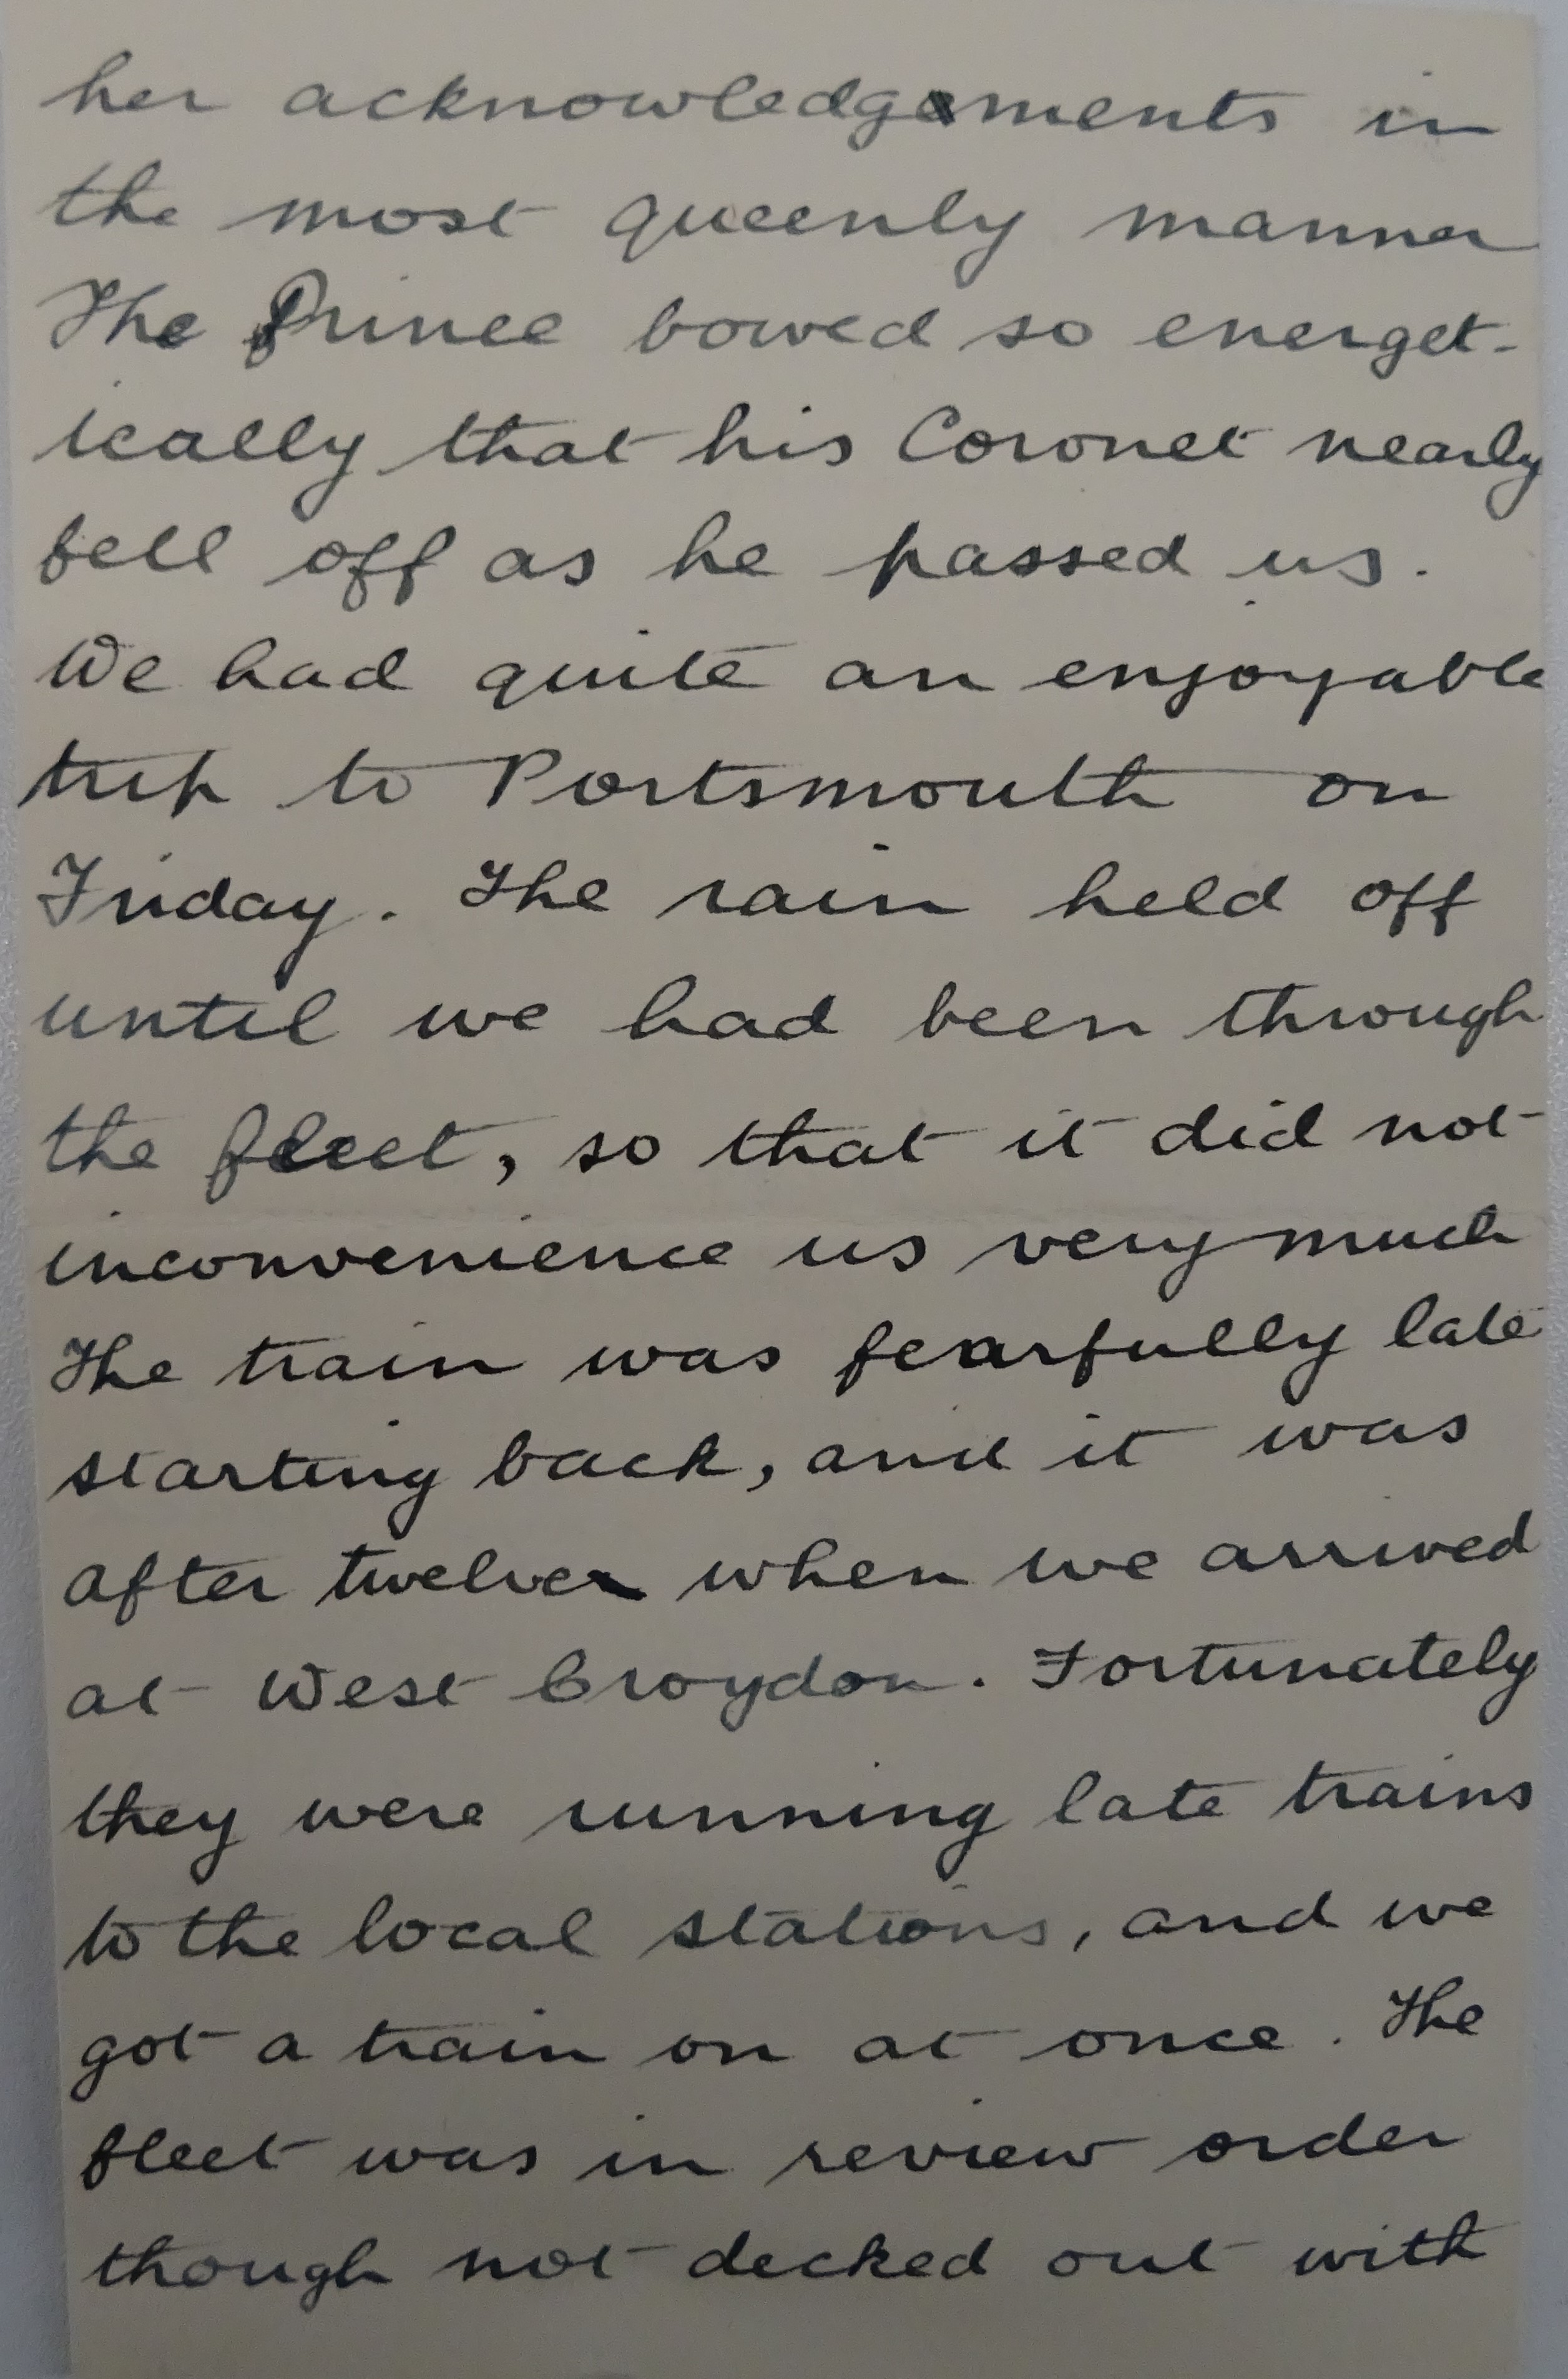 her acknowledgements in
the most queenly manner
The Prince bowed so energet-
ically that his Coronet nearly
fell off as he passed us.
We had quite an enjoyable
trip to Portsmouth on
Friday. The rain held off
until we had been through
the fleet, so that it did not
inconvenience us very much
The train was fearfully late
starting back, and it was
after twelve when we arrived
at West Croydon. Fortunately
they were running late trains
to the local stations, and we
got a train on at once. The
fleet was in review order
though not decked out with